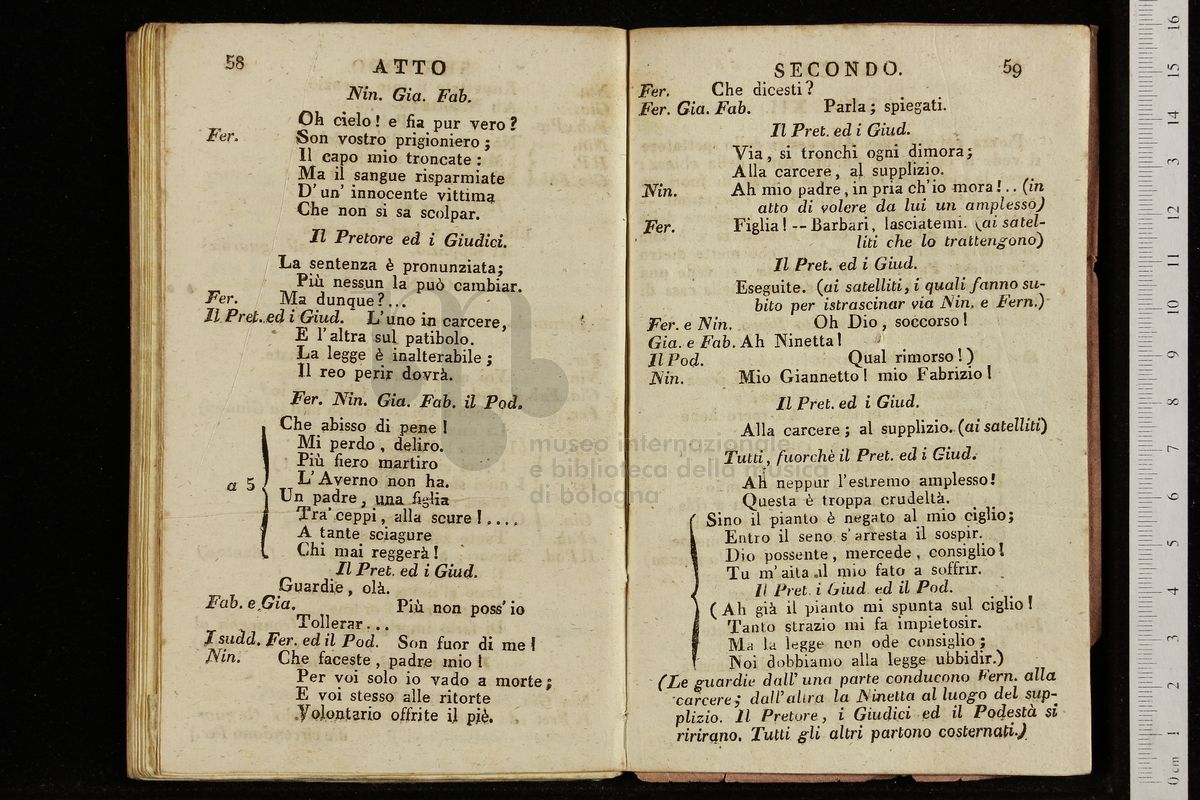 58
ATTO
Nin. Gia. Fab.
Oh cielo! e fia pur vero?
Fer. Son vostro prigioniero;
Il capo mio troncate:
Ma il sangue risparmiate
D'un' innocente vittima
Che non si sa scolpar.
Il Pretore ed i Giudici.
La sentenza è pronunziata;
Più nessun la può cambiar.
Fer. Ma dunque?...
Il Pret. ed i Giud. L'uno in carcere,
E l'altra sul patibolo.
La legge è inalterabile;
Il reo perir dovrà.
Fer. Nin. Gia. Fab. il Pod.
Che abisso di pene!
Mi perdo, deliro.
Più fiero martiro
L'Averno non ha.
a 5 Un padre, una figlia
Tra' ceppi, alla scure!....
A tante sciagure
Chi mai reggerà!
Il Pret. ed i Giud.
Guardie, olà.
Fab. e Gia. Più non poss'io
Tollerar...
I sudd. Fer. ed il Pod. Son fuor di me!
Nin. Che faceste, padre mio!
Per voi solo io vado a morte;
E voi stesso alle ritorte
Volontario offrite il piè.
SECONDO. 59
Fer. Che dicesti?
Fer. Gia. Fab. Parla; spiegati.
Il Pret. ed i Giud.
Via, si tronchi ogni dimora;
Alla carcere, al supplizio.
Nin. Ah mio padre, in pria ch'io mora!.. (in
atto di volere da lui un amplesso)
Fer. Figlia! -- Barbari, lasciatemi. (ai satel-
liti che lo trattengono)
Il Pret. ed i Giud.
Eseguite. (ai satelliti, i quali fanno su-
bito per istrascinar via Nin. e Fern.)
Fer. e Nin. Oh Dio, soccorso!
Gia. e Fab. Ah Ninetta!
Il Pod. Qual rimorso!)
Nin. Mio Giannetto! mio Fabrizio!
Il Pret. ed i Giud.
Alla carcere; al supplizio. (ai satelliti)
Tutti, fuorchè il Pret. ed i Giud.
Ah neppur l'estremo amplesso!
Questa è troppa crudeltà.
Sino il pianto è negato al mio ciglio;
Entro il seno s'arresta il sospir.
Dio possente, mercede, consiglio!
Tu m'aita il mio fato a soffrir.
Il Pret. i Giud. ed il Pod.
(Ah già il pianto mi spunta sul ciglio!
Tanto strazio mi fa impietosir.
Ma la legge non ode consiglio;
Noi dobbiamo alla legge ubbidir.)
(Le guardie dall' una parte conducono Fern. alla
carcere; dall'altra la Ninetta al luogo del sup-
plizio. Il Pretore, i Giudici ed il Podestà si
ririrano. Tutti gli altri partono costernati.)
museo internazionale
e biblioteca della musica
di bologna
0 cm 1 2 3 4 5 6 7 8 9 10 11 12 13 14 15 16